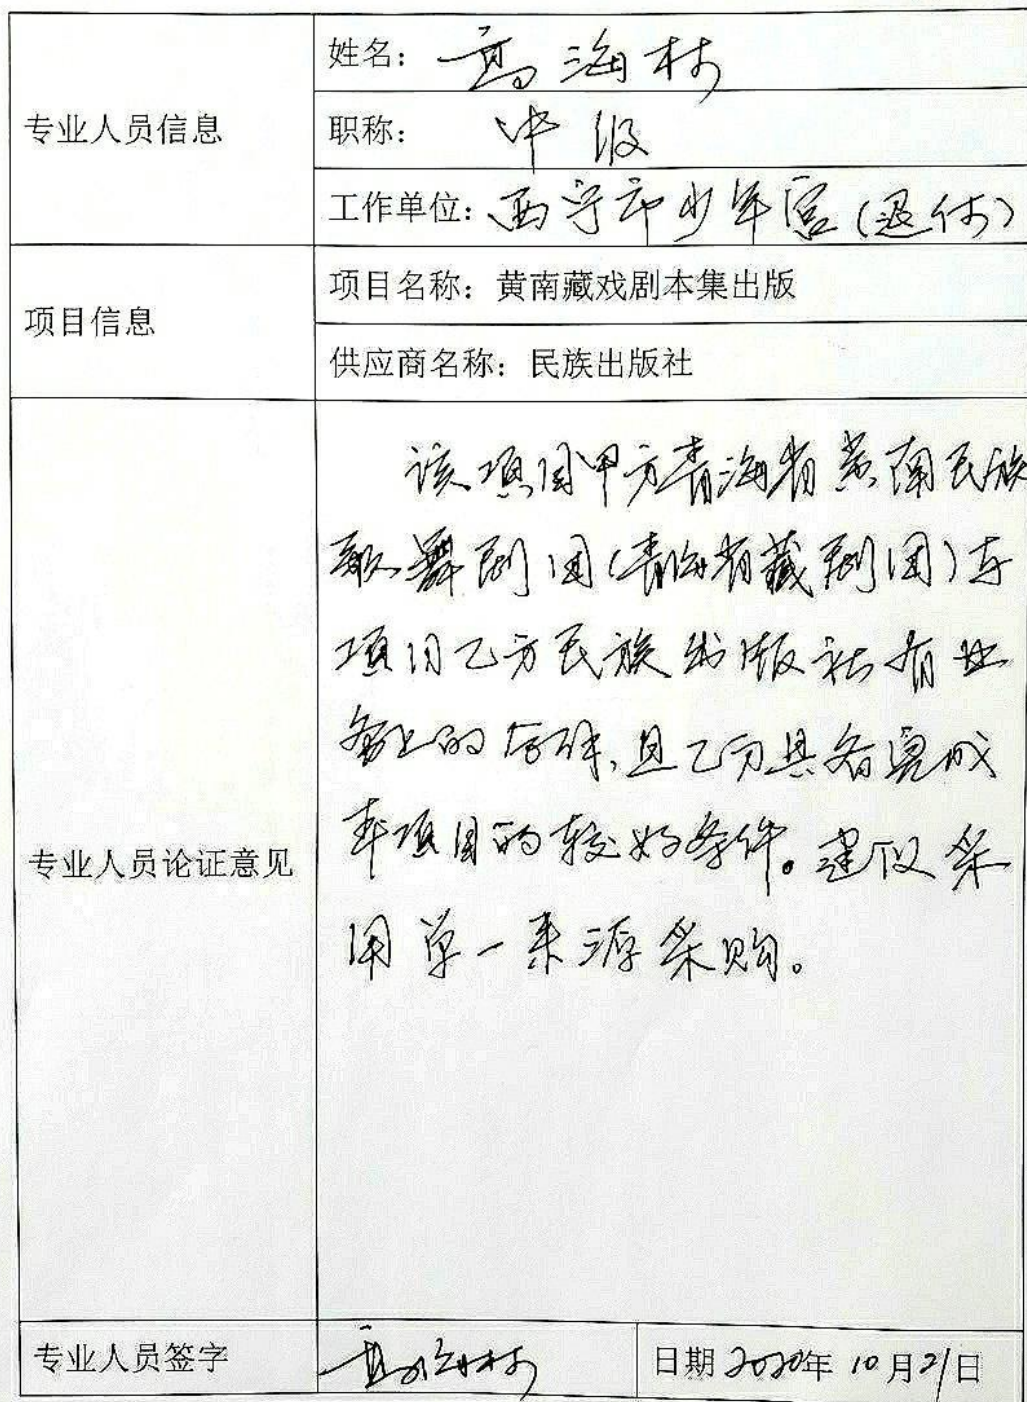 专业人员信息
姓名：高海林
职称：中级
工作单位：西宁市少年宫(退休)
项目信息
项目名称：黄南藏戏剧本集出版
供应商名称：民族出版社
专业人员论证意见
该项目甲方青海省黄南民族
歌舞剧团(青海省藏剧团)与
项目乙方民族出版社有业
务上的合作，且乙方具备完成
本项目的较好条件。建议采
用单一来源采购。
专业人员签字
高海林
日期2020年10月21日